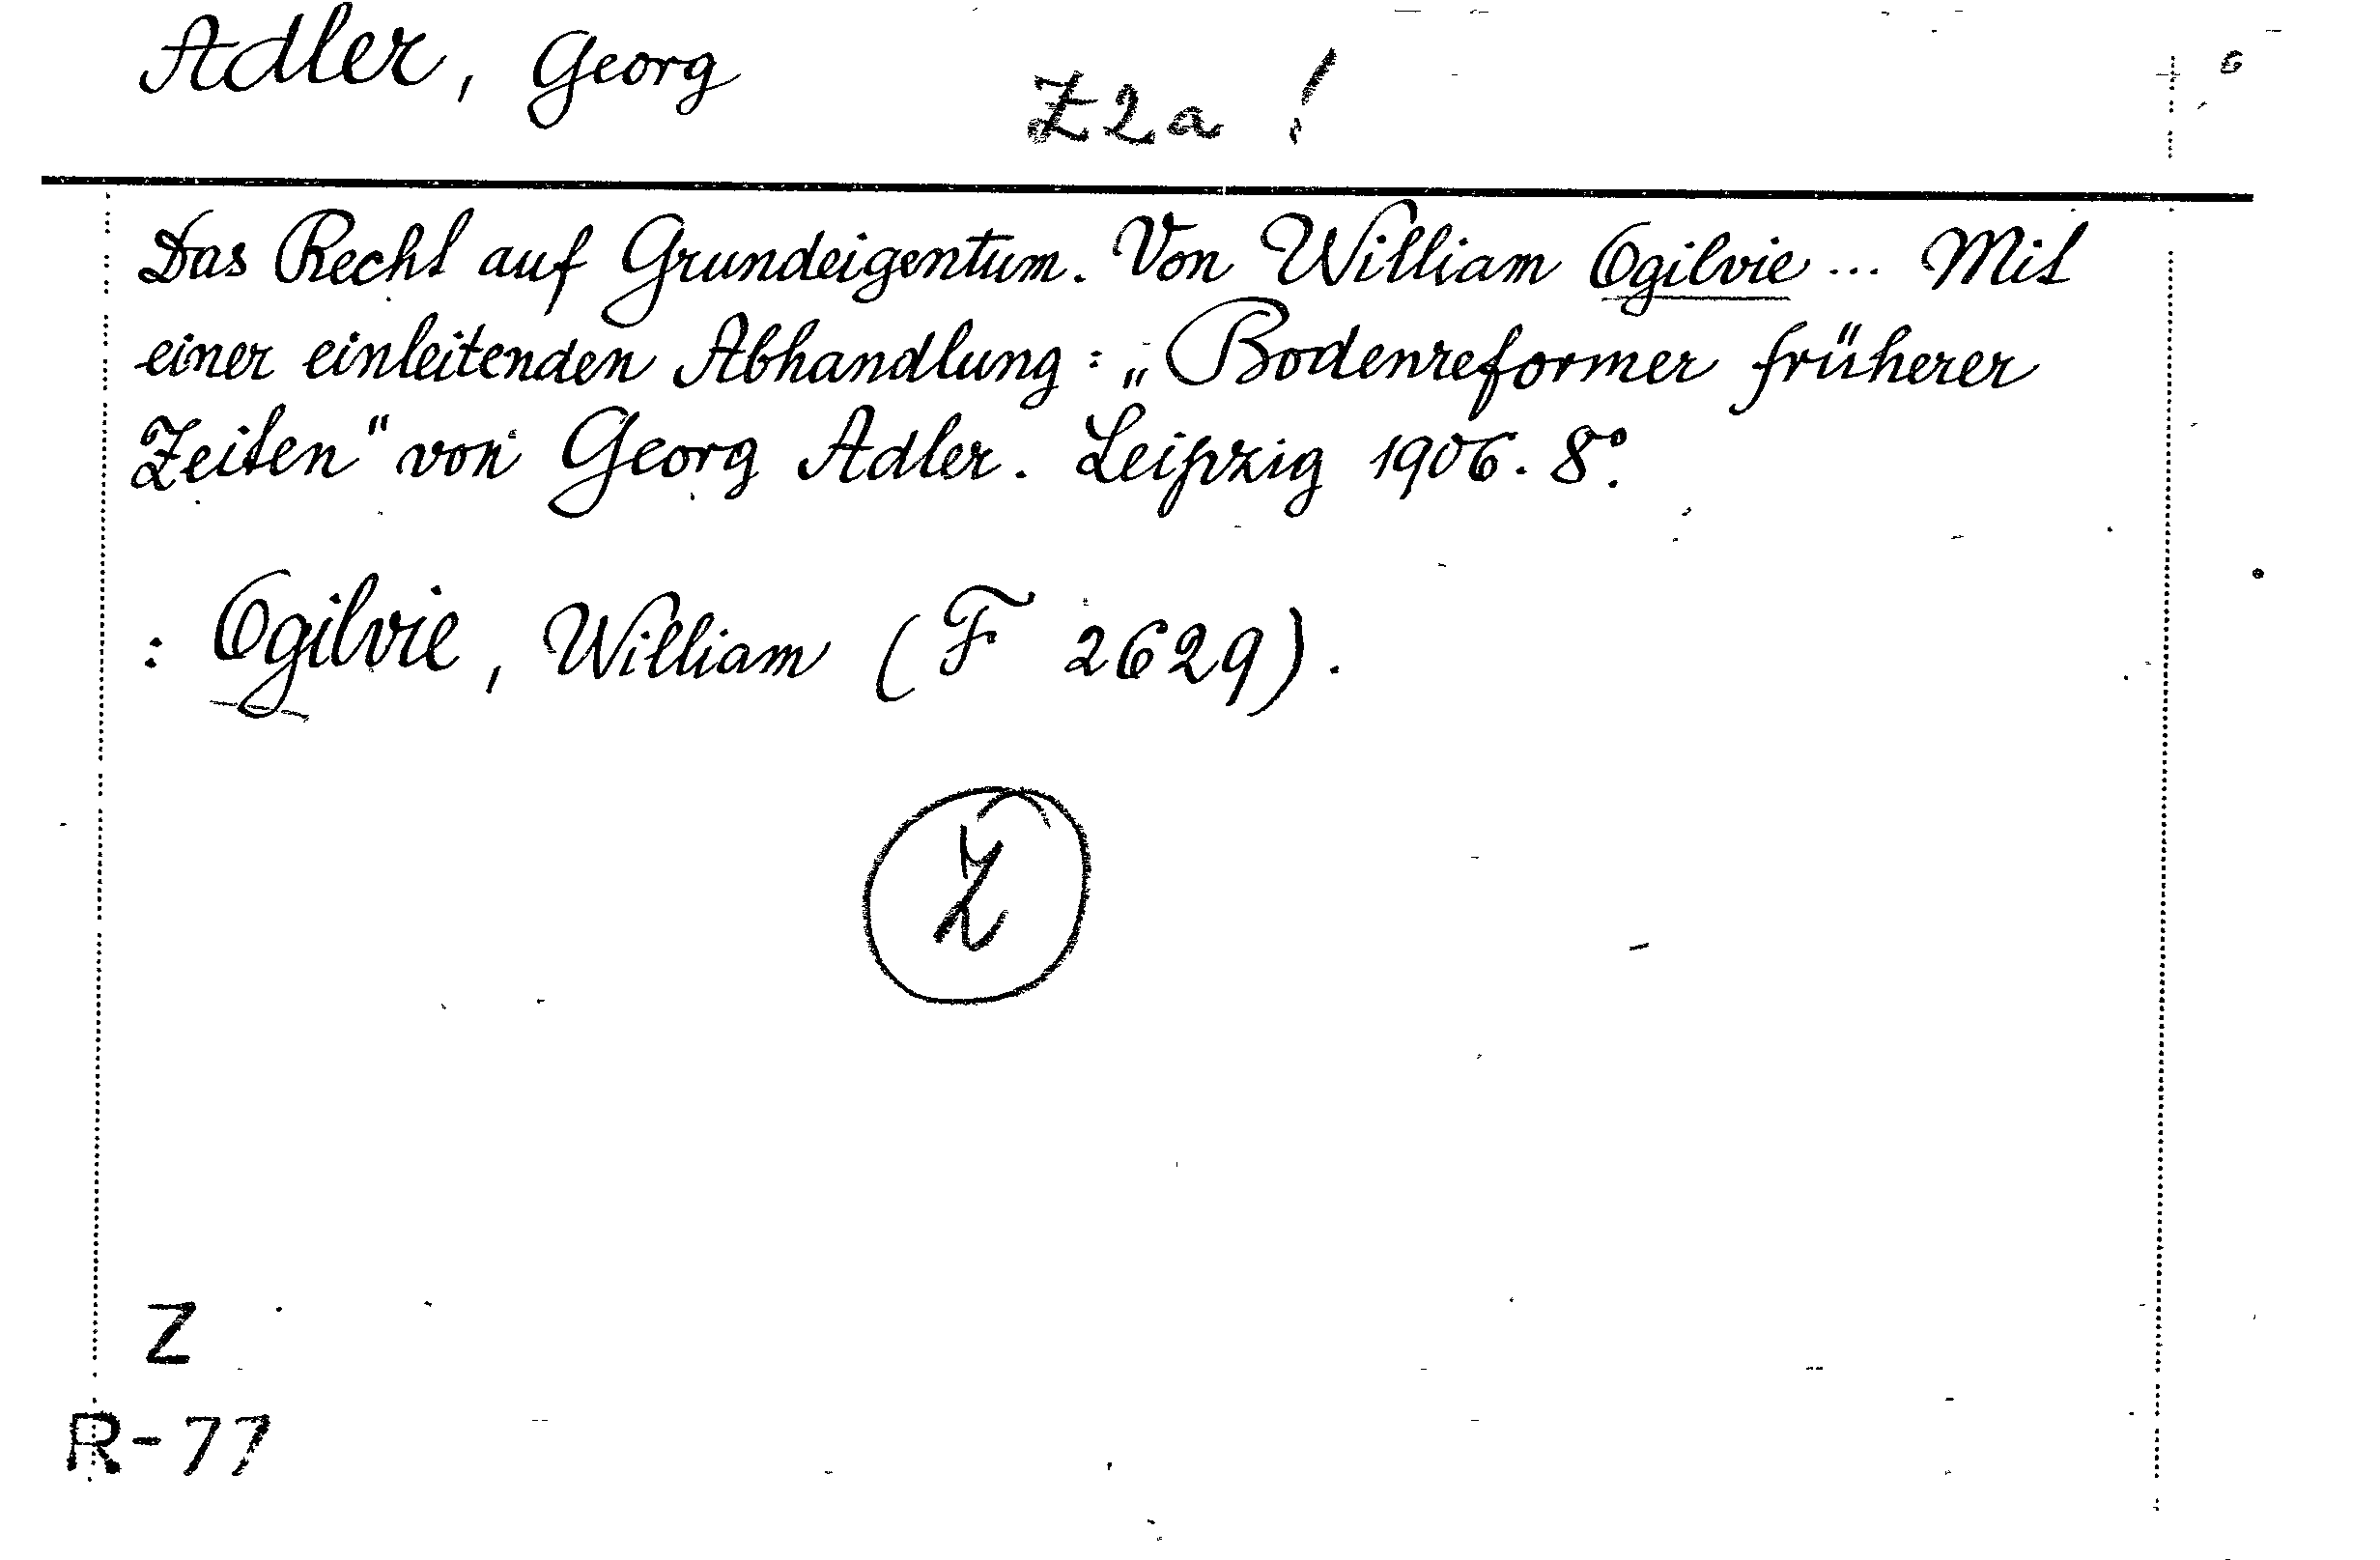 Adler, Georg
Z2a !
Das Recht auf Grundeigentum. Von William Ogilvie ... Mit
einer einleitenden Abhandlung: „Bodenreformer früherer
Zeiten" von Georg Adler. Leipzig 1906. 8°.
: Ogilvie, William (F 2629).
Z
Z
R-77